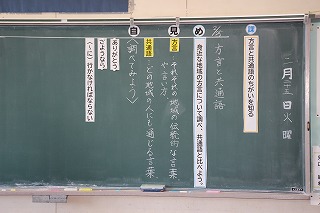 二月十三日火曜
課 方言と共通語のちがいを知る
2/13 方言と共通語
め 身近な地域の方言について調べ、共通語と比べよう。
見
方言 それぞれの地域の伝統的な言葉
やさしい方
共通語 どの地域の人にも通じる言葉
自 〈調べてみよう〉
ありがとう
さようなら
(〜に)行かなければならない